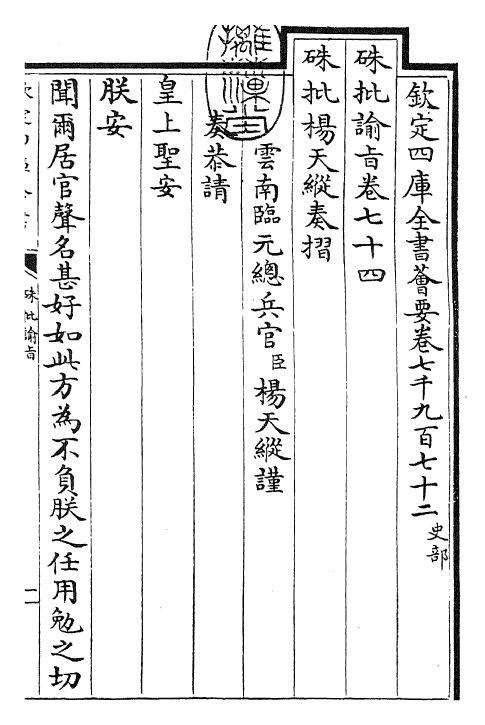 欽定四庫全書薈要卷七千九百七十二 史部
硃批諭旨卷七十四
硃批楊天縱奏摺
雲南臨元總兵官臣楊天縱謹
奏恭請
皇上聖安
朕安
聞爾居官聲名甚好如此方為不負朕之任用勉之切
硃批諭旨
二